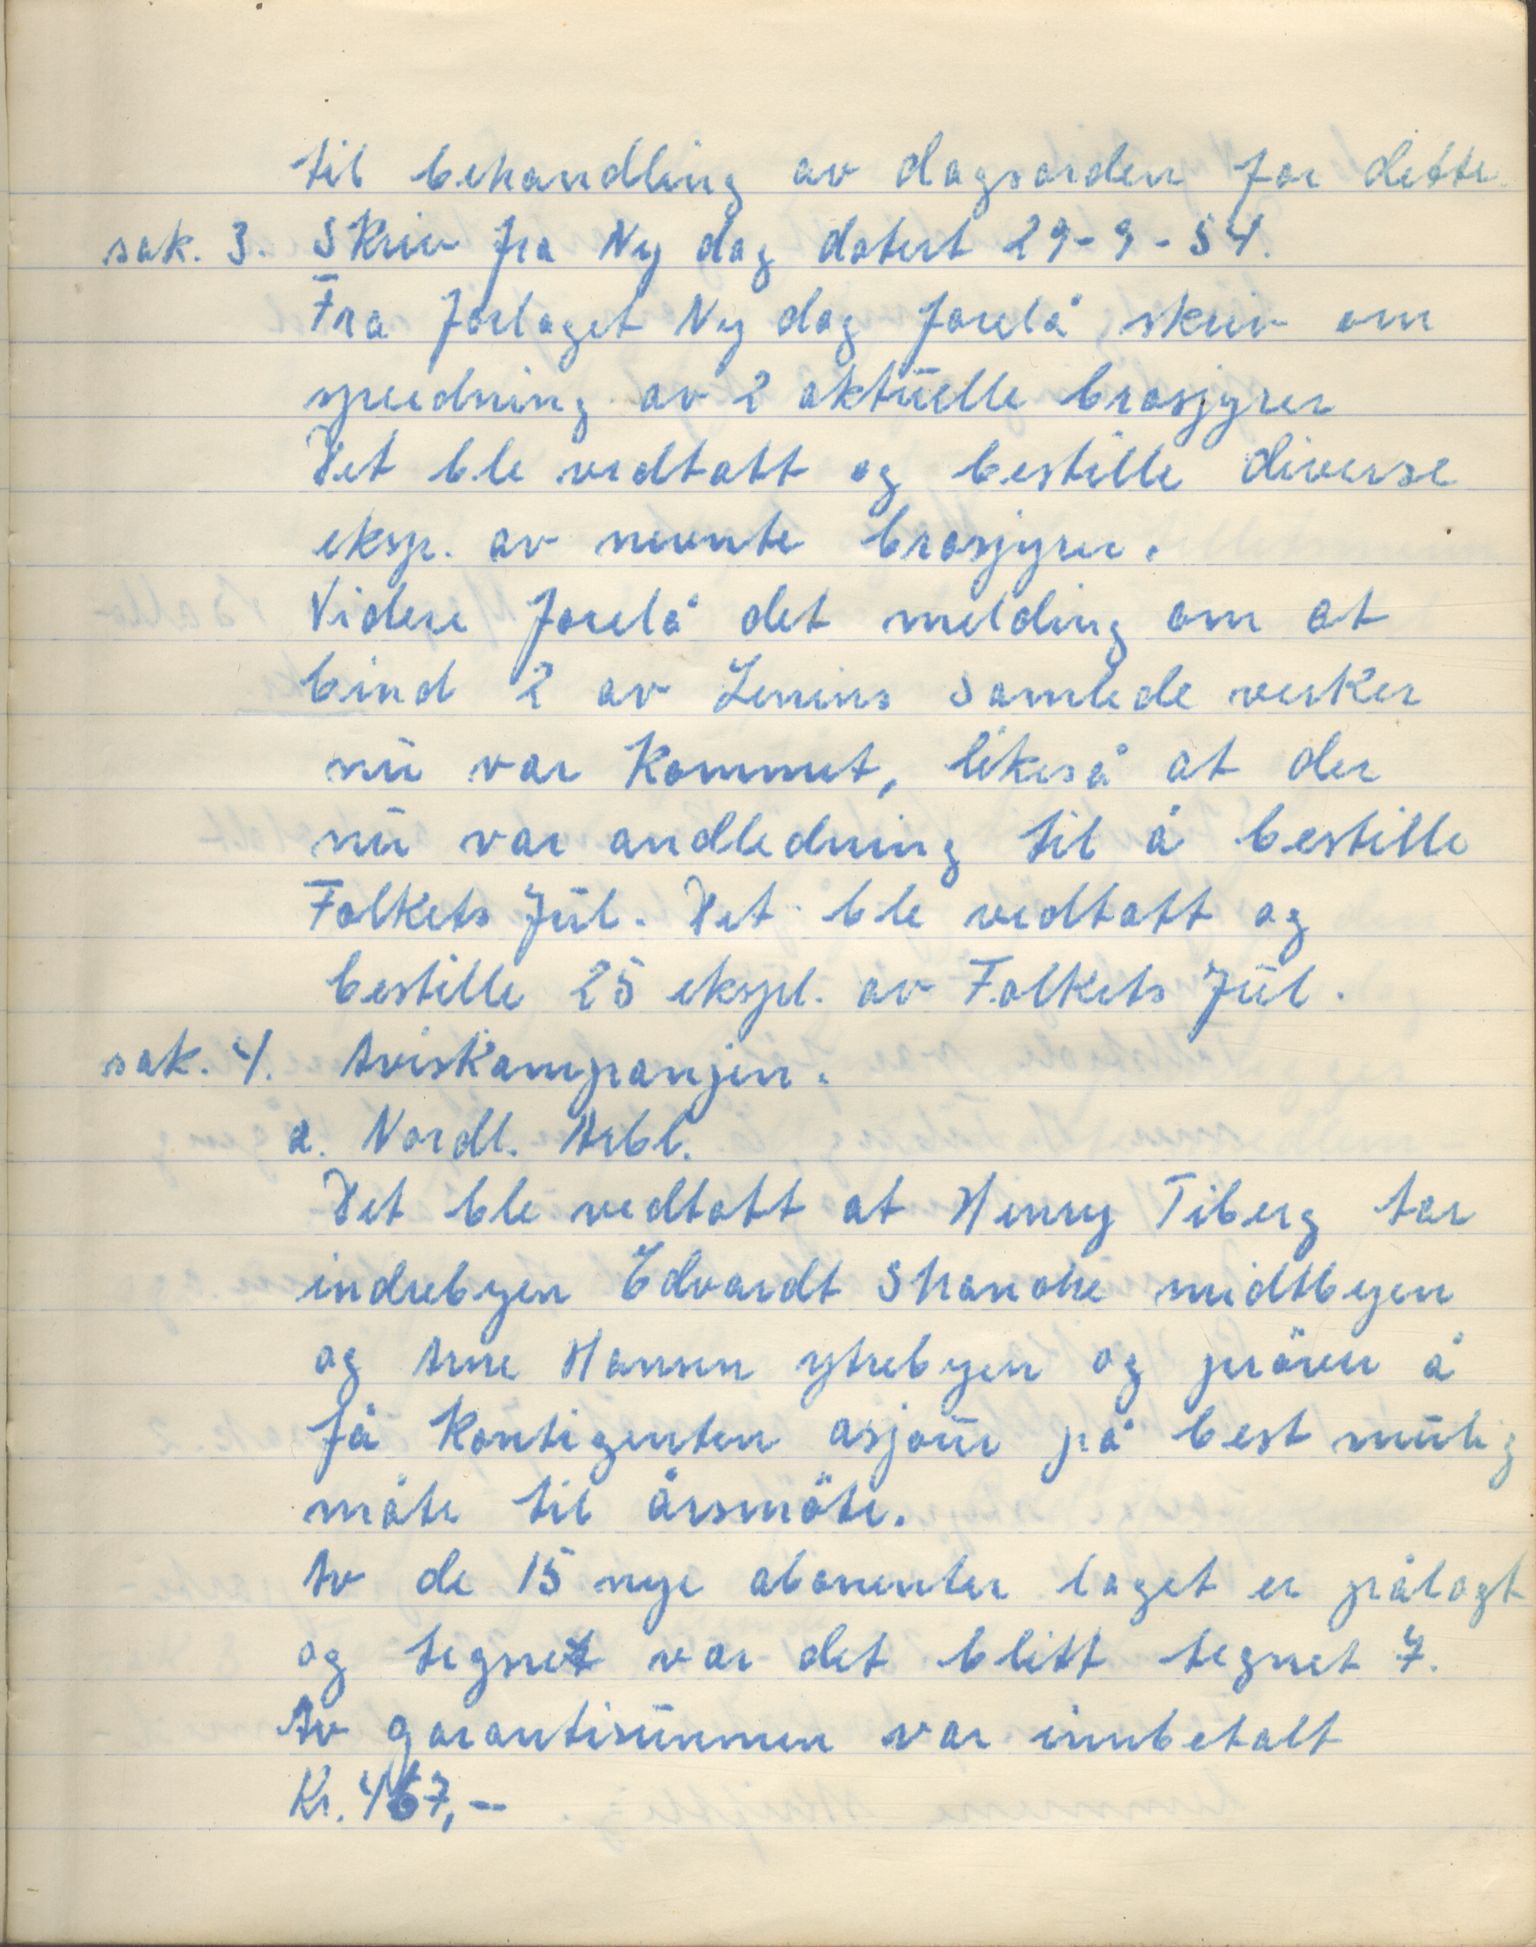 til behandling av dagsorden for dette.
sak. 3. Skriv fra Ny dag datert 29-9-54.
Fra forlaget Ny dag forelå skriv om
spredning av 2 aktuelle brosjyrer
Det ble vedtatt og bestille diverse
eksp. av nevnte brosjyrer.
Videre forelå det melding om at
bind 2 av Lenins Samlede verker
nu var kommet, likeså at der
nu var andledning til å bestille
Folkets Jul. Det ble vedtatt og
bestille 25 ekspl. av Folkets Jul.
sak. 4. Aviskampanjen.
a. Nordl. Arbl.
Det ble vedtatt at Henry Tiberg tar
indrebyen Edvardt Skanche midtbyen
og Arne Hansen ytrebyen og pröver å
få Kontigenten asjour på best mulig
måte til årsmöte.
Av de 15 nye abonenter laget er pålagt
og tegnet var det blitt tegnet 7.
Av garantisummen var innbetalt
Kr. 467,-